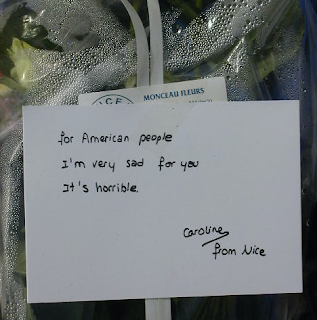 MONCEAU FLEURS
for American people
I'm very sad for you
It's horrible.
Caroline
from Nice